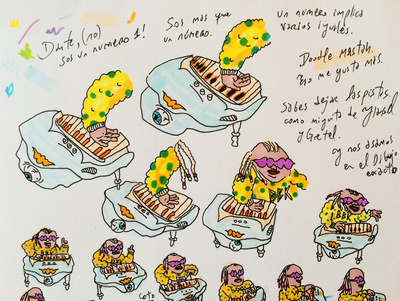 Dante, (no)
sos un numero 1!
Sos mas que
un número.
un número implica
varios iguales.
Doodle Mastah.
Eso me gusta más.
Sabes dejar las pistas
como miguita de
y Gretel.
y nos
en el Dibujo
exacto
BBK
BBK